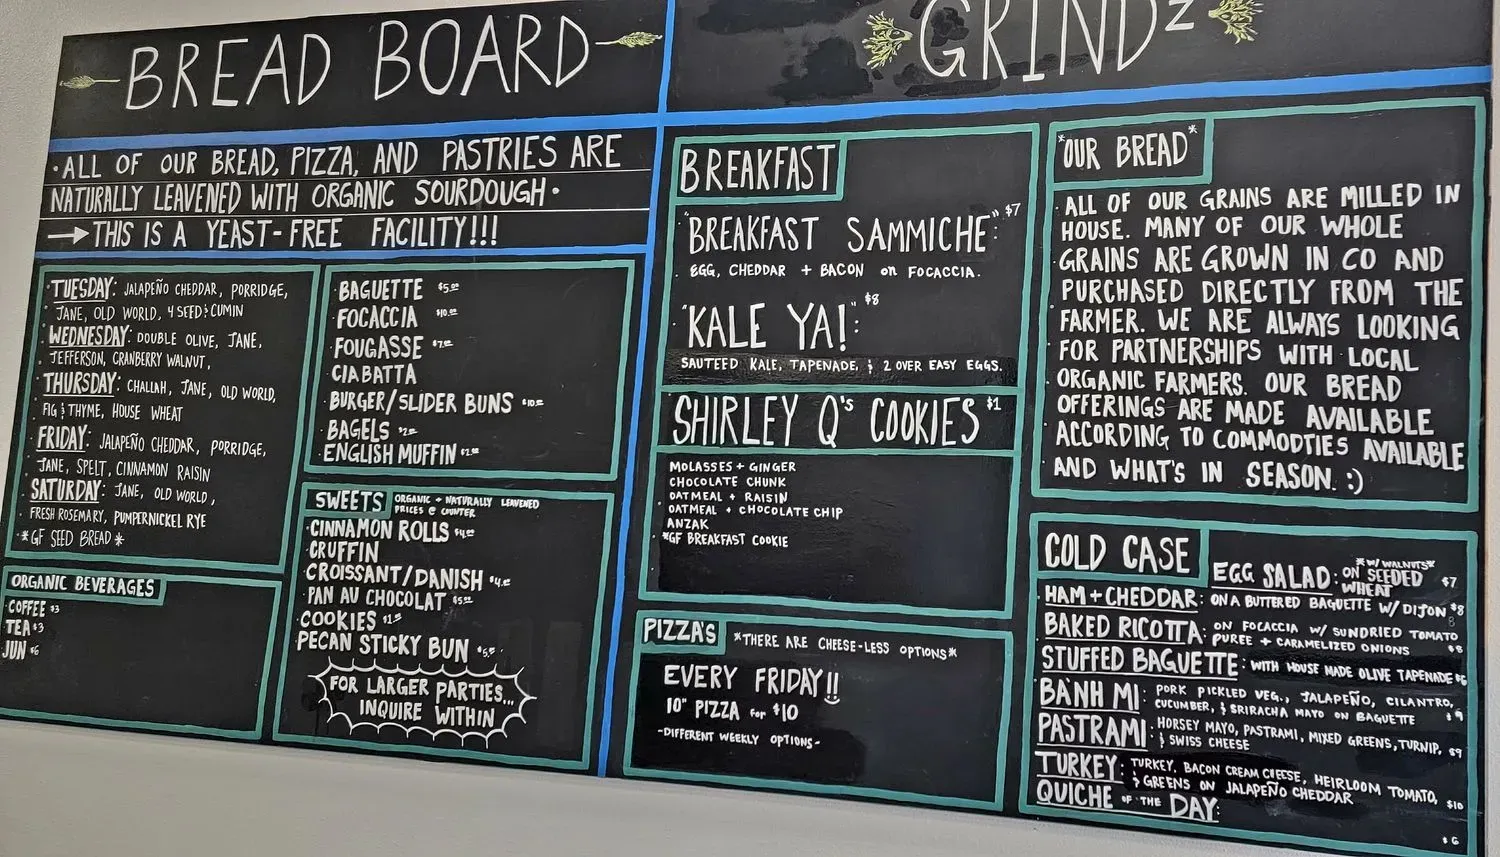 BREAD BOARD
·ALL OF OUR BREAD, PIZZA, AND PASTRIES ARE
NATURALLY LEAVENED WITH ORGANIC SOURDOUGH·
→THIS IS A YEAST-FREE FACILITY!!!
·TUESDAY: JALAPEÑO CHEDDAR, PORRIDGE,
JANE, OLD WORLD, 4 SEED & CUMIN
·WEDNESDAY: DOUBLE OLIVE, JANE,
JEFFERSON, CRANBERRY WALNUT,
·THURSDAY: CHALLAH, JANE, OLD WORLD,
FIG & THYME, HOUSE WHEAT
·FRIDAY: JALAPEÑO CHEDDAR, PORRIDGE,
JANE, SPELT, CINNAMON RAISIN
SATURDAY: JANE, OLD WORLD,
FRESH ROSEMARY, PUMPERNICKEL RYE
·*GF SEED BREAD*
ORGANIC BEVERAGES
·COFFEE $3
·TEA $3
·JUN $6
·BAGUETTE $5.00
·FOCACCIA $10.00
·FOUGASSE $7.00
·CIABATTA
·BURGER/SLIDER BUNS
·BAGELS
·ENGLISH MUFFIN
SWEETS ORGANIC + NATURALLY LEAVENED
PRICES @ COUNTER
·CINNAMON ROLLS
CRUFFIN
CROISSANT/DANISH
·PAN AU CHOCOLAT
·COOKIES
PECAN STICKY BUN
FOR LARGER PARTIES...
INQUIRE WITHIN
GRINDZ
BREAKFAST
"BREAKFAST SAMMICHE": $7
EGG, CHEDDAR + BACON on FOCACCIA.
"KALE YA!" $8
SAUTEED KALE, TAPENADE, & 2 OVER EASY EGGS.
SHIRLEY Q's COOKIES $1
MOLASSES + GINGER
CHOCOLATE CHUNK
OATMEAL + RAISIN
OATMEAL + CHOCOLATE CHIP
ANZAK
*GF BREAKFAST COOKIE
PIZZA'S *THERE ARE CHEESE-LESS OPTIONS*
EVERY FRIDAY!!
10" PIZZA for $10
-DIFFERENT WEEKLY OPTIONS-
*OUR BREAD*
ALL OF OUR GRAINS ARE MILLED IN
HOUSE. MANY OF OUR WHOLE
GRAINS ARE GROWN IN CO AND
PURCHASED DIRECTLY FROM THE
FARMER. WE ARE ALWAYS LOOKING
FOR PARTNERSHIPS WITH LOCAL
ORGANIC FARMERS. OUR BREAD
OFFERINGS ARE MADE AVAILABLE
ACCORDING TO COMMODTIES AVAILABLE
AND WHAT'S IN SEASON. :)
COLD CASE
EGG SALAD: *W/ WALNUTS*
ON SEEDED
WHEAT $7
HAM + CHEDDAR: ON A BUTTERED BAGUETTE W/ DIJON $8
BAKED RICOTTA: ON FOCACCIA W/ SUNDRIED TOMATO
PUREE + CARAMELIZED ONIONS $8
STUFFED BAGUETTE: WITH HOUSE MADE OLIVE TAPENADE $6
BÀNH MI: PORK PICKLED VEG., JALAPEÑO, CILANTRO,
CUCUMBER, & SRIRACHA MAYO ON BAGUETTE $9
PASTRAMI: HORSEY MAYO, PASTRAMI, MIXED GREENS, TURNIP,
& SWISS CHEESE $9
TURKEY: TURKEY, BACON CREAM CHEESE, HEIRLOOM TOMATO,
& GREENS ON JALAPEÑO CHEDDAR $10
QUICHE OF THE DAY:
$6